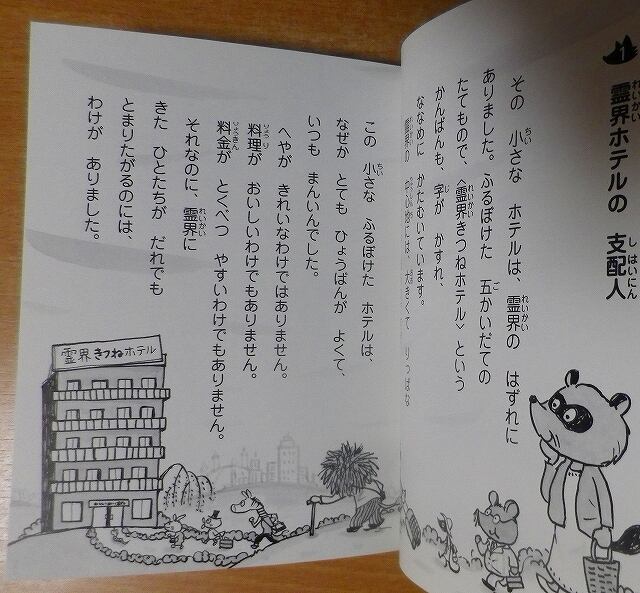 1
霊界ホテルの 支配人
その 小さな ホテルは、霊界の はずれに
ありました。ふるぼけた 五かいだての
たてもので、〈霊界きつねホテル〉という
かんばんも、字が かすれ、
ななめに かたむいています。
霊界の 中心地には、大きくて りっぱな
この 小さな ふるぼけた ホテルは、
なぜか とても ひょうばんが よくて、
いつも まんいんでした。
へやが きれいなわけではありません。
料理が おいしいわけでもありません。
料金が とくべつ やすいわけでもありません。
それなのに、霊界に
きた ひとたちが だれでも
とまりたがるのには、
わけが ありました。
霊界きつねホテル